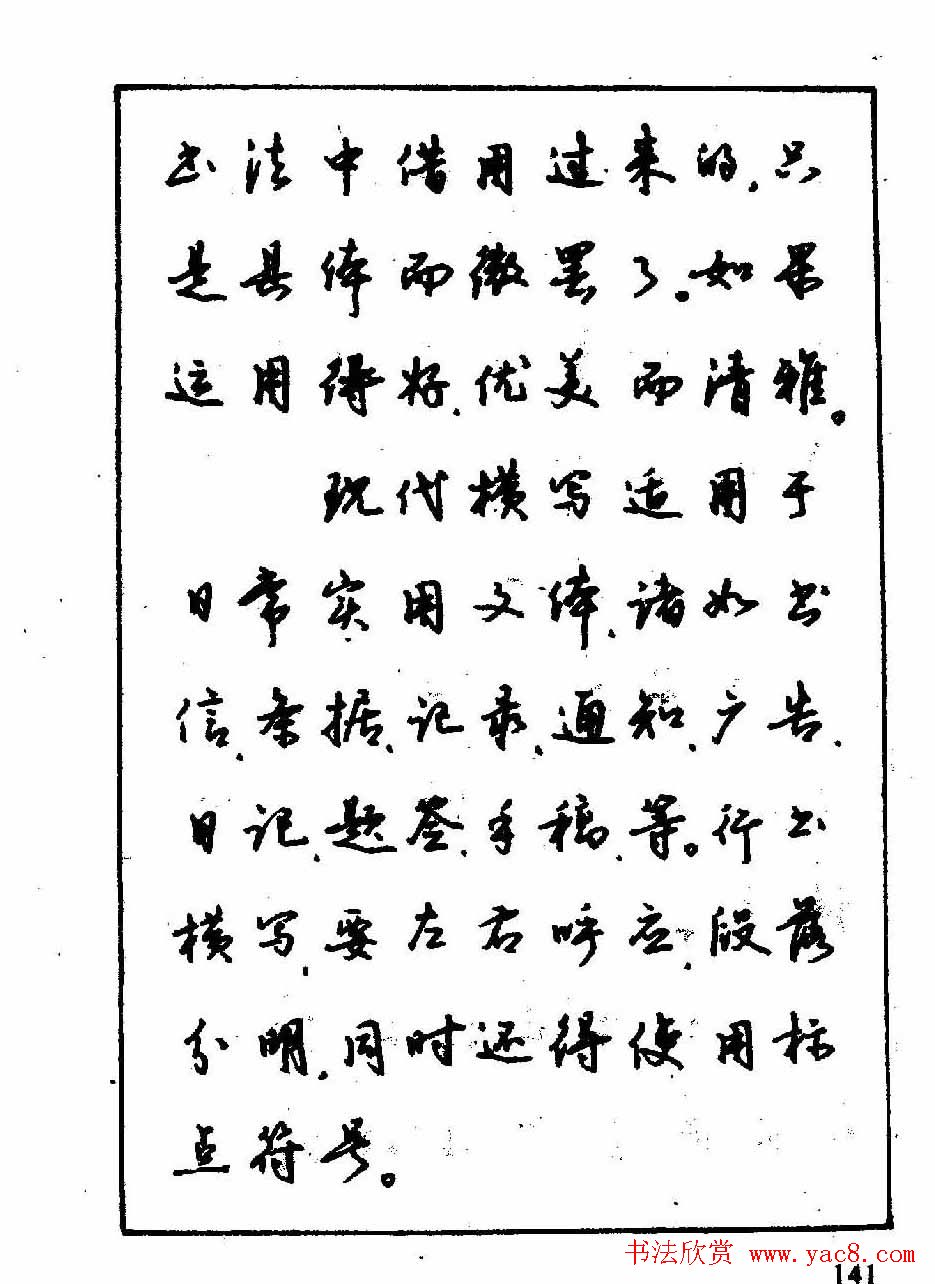 书法中借用过来的,只
是具体而微罢了。如果
运用得好,优美而清雅。
现代横写适用于
日常实用文体,诸如书
信、条据、记录、通知、广告、
日记、题签、手稿、等。行书
横写,要左右呼应,段落
分明,同时还得使用标
点符号。
书法欣赏 www.yac8.com
141